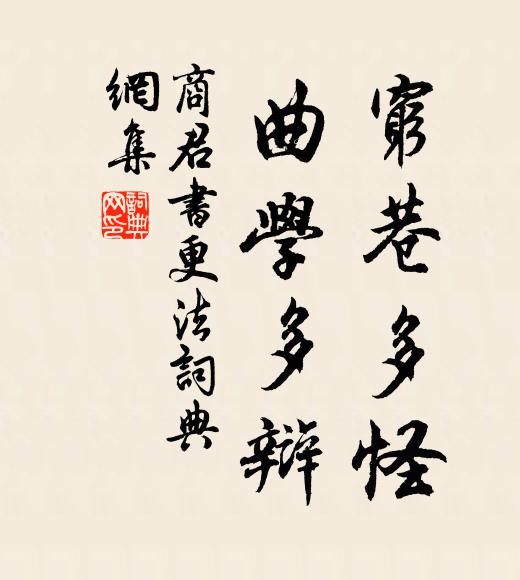 窮巷多怪
曲學多辯
商君書更法詞典
網集
詞典網印